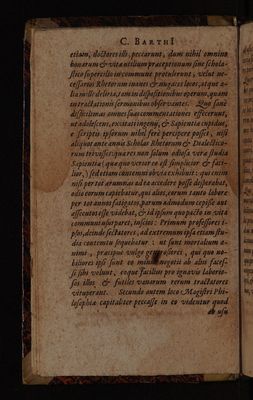 C. BARTHI
etiam, doctores illi, peccarunt, dum nihil omnino
bonarum & vtia utilium præceptionum sine schola-
stico supercilio in commune protulerunt, velut ne-
cessarios Rhetorum inanes & nugaces locos, atque a-
lia mille deliria, tam in dispositionibus operum, quam
in tractationis sermonibus observantes. Quo sane
difficillimas omnes suas commentationes effecerunt,
ut adolescens, excitati ingenii, & Sapientiæ cupidus,
e scriptis ipsorum nihil fere percipere posset, nisi
aliquot ante annis Scholas Rhetorum & Dialectico-
rum trivisset: quæ res non solum odiosa vera studia
Sapientiæ (quæ quo verior eo est simplicior & faci-
lior,) sed etiam contemtui obvia exhibuit: quis enim
nisi per tot ærumnas ad te accedere posse desperabat,
odio eorum capiebatur, qui alios, eorum causa labore
per tot annos fatigatos, parum admodum eo ipse aut
assecutos esse videbat, & id ipsum quo pacto in vita
communi usurparet, inscios. Primum professores i-
psos, deinde sectatores, ad extremum ipsa etiam stu-
dia contemtu sequebatur: ut sunt mortalium a-
nimi, præcipue vulgo generosiores, qui quo no-
biliores ipsi sunt eo minus negotii ab aliis faces-
si sibi volunt, eoque facilius pro ignavis laborio-
sos illos & futiles vanarum rerum tractatores
vituperant. Secundo autem loco Magistri Phi-
losophiæ capitaliter peccasse in eo videntur quod
ab usu